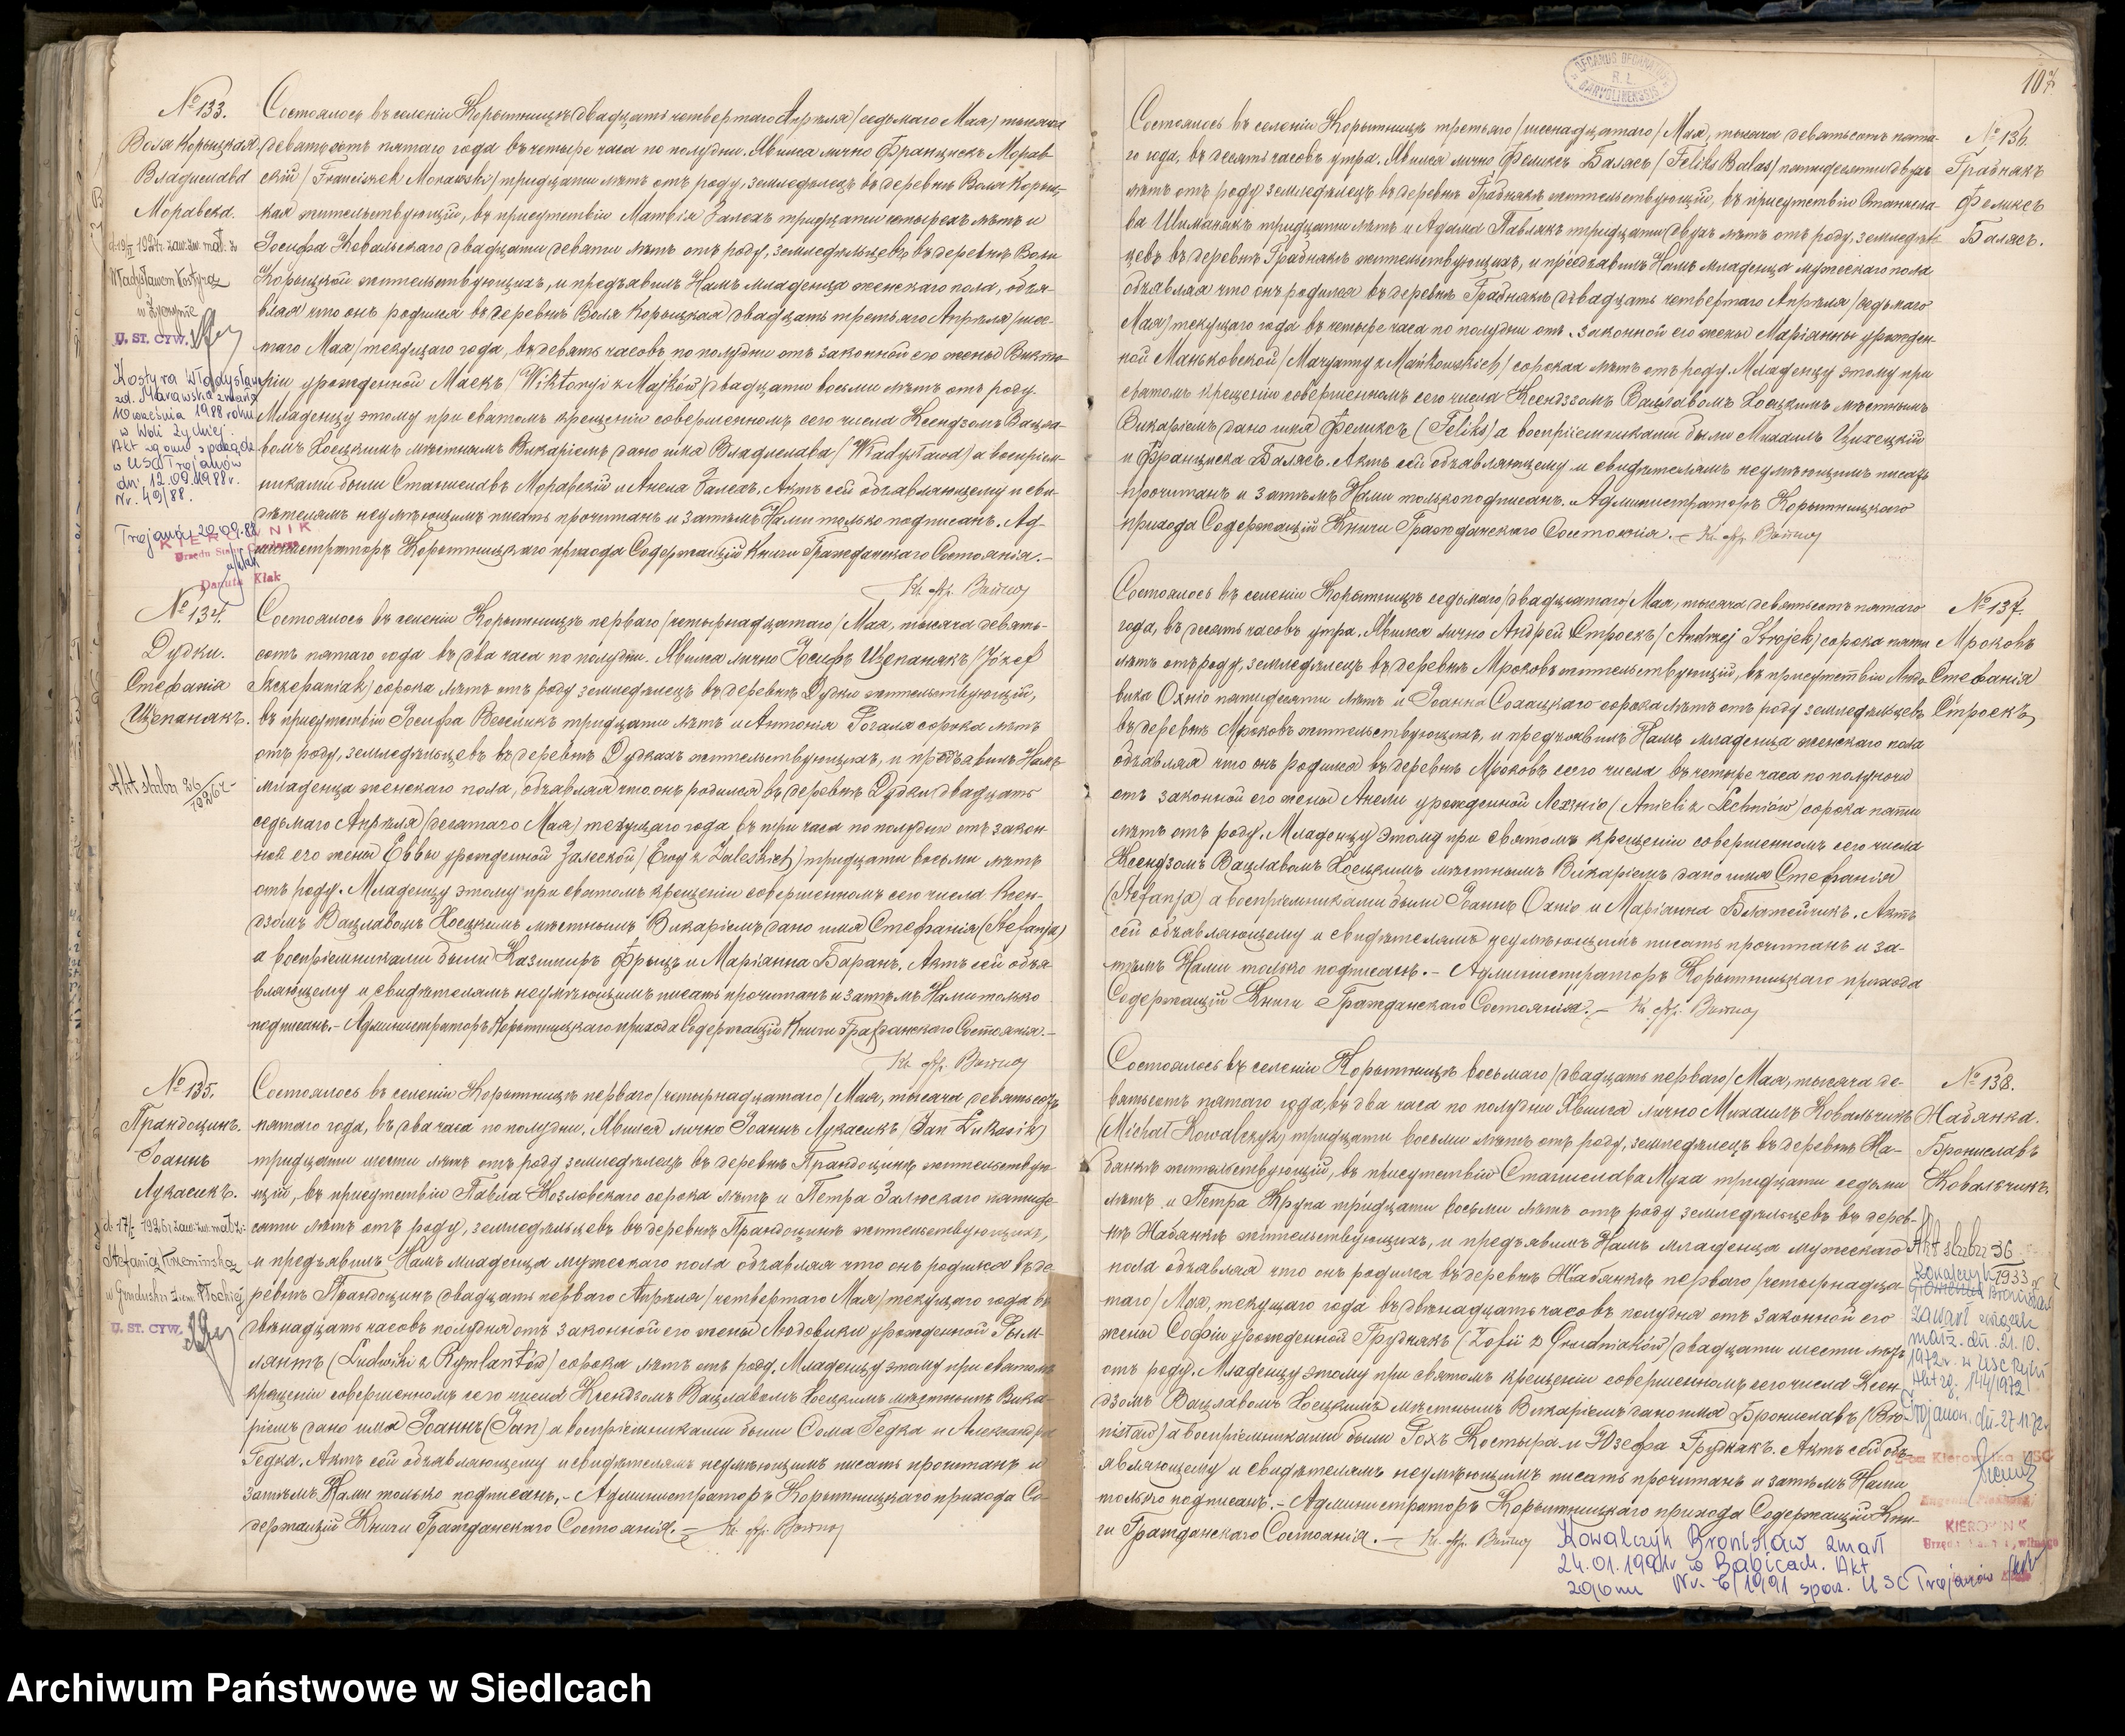 № 133.
Воля Корыцкая.
Владислава
Моравска.
Władysławem Kostyrą
w Życzynie
U. ST. CYW.
Kostyra Władysława
zd. Marawska zmarła
10 września 1988 roku
w Woli Życkiej.
Akt zgonu sporządz.
w USC Trojanów
dn. 12.09.1988 r.
Nr. 49/88.
Trojanów 20.09.88
KIEROWNIK
Urzędu Stanu Cywilnego
Danuta Kłak
Состоялось въ селеніи Корытница двадцать четвертаго Апрѣля /седьмаго Мая/ тысяча
девятьсотъ пятаго года въ четыре часа по полудни. Явился лично Францискъ Морав-
скій /Franciszek Morawski/ тридцати лѣтъ отъ роду, земледѣлецъ въ деревнѣ Воля Корыц-
кая жительствующій, въ присутствіи Матвѣя Залеха тридцати четырехъ лѣтъ и
Іосифа Ковальскаго двадцати девяти лѣтъ отъ роду, земледѣльцевъ въ деревнѣ Воли
Корыцкой жительствующихъ, и предъявилъ Намъ младенца женскаго пола, объя-
вляя что онъ родился въ деревнѣ Воля Корыцкая двадцать третьяго Апрѣля /шес-
таго Мая/ текущаго года, въ девять часовъ по полудни отъ законной его жены Викто-
ріи урожденной Маекъ /Wiktoryi z Majków/ двадцати восьми лѣтъ отъ роду.
Младенцу этому при святомъ крещеніи совершенномъ сего числа Ксендзомъ Вацла-
вомъ Хоецкимъ мѣстнымъ Викаріемъ дано имя Владислава /Władysława/ а воспріем-
никами были Станиславъ Моравскій и Анеля Залеха. Актъ сей объявляющему и сви-
дѣтелямъ неумѣющимъ писать прочитанъ и затѣмъ Нами только подписанъ. Ад-
министраторъ Корытницкаго прихода Содержащій Книги Гражданскаго Состоянія. –
№ 134.
Дудки.
Стефанія
Щепанякъ.
Состоялось въ селеніи Корытница перваго /четырнадцатаго/ Мая, тысяча девять-
сотъ пятаго года въ два часа по полудни. Явился лично Іосифъ Щепанякъ /Józef
Szczepaniak/ сорока лѣтъ отъ роду земледѣлецъ въ деревнѣ Дудки жительствующій,
въ присутствіи Іосифа Веселикъ тридцати лѣтъ и Антонія Рогаля сорока лѣтъ
отъ роду, земледѣльцевъ въ деревнѣ Дудкахъ жительствующихъ, и предъявилъ Намъ
младенца женскаго пола, объявляя что онъ родился въ деревнѣ Дудки двадцать
седьмаго Апрѣля /десятаго Мая/ текущаго года въ три часа по полудни отъ закон-
ной его жены Еввы урожденной Залеской /Ewy z Zaleskich/ тридцати восьми лѣтъ
отъ роду. Младенцу этому при святомъ крещеніи совершенномъ сего числа Ксен-
дзомъ Вацлавомъ Хоецкимъ мѣстнымъ Викаріемъ дано имя Стефанія (Stefanja)
а воспріемниками были Казимиръ Фрыцъ и Маріанна Баранъ. Актъ сей объя-
вляющему и свидѣтелямъ неумѣющимъ писать прочитанъ и затѣмъ Нами только
подписанъ. – Администраторъ Корытницкаго прихода Содержащій Книги Гражданскаго Состоянія. –
№ 135.
Прандоцинъ.
Іоаннъ
Лукасикъ.
Stefanią Krzemińską
U. ST. CYW.
Состоялось въ селеніи Корытница перваго /четырнадцатаго/ Мая, тысяча девятьсотъ
пятаго года, въ два часа по полудни. Явился лично Іоаннъ Лукасикъ /Jan Łukasik/
тридцати шести лѣтъ отъ роду земледѣлецъ въ деревнѣ Прандоцинѣ жительствую-
щій, въ присутствіи Павла Козловскаго сорока лѣтъ и Петра Залюскаго пятиде-
сяти лѣтъ отъ роду, земледѣльцевъ въ деревнѣ Прандоцинѣ жительствующихъ,
и предъявилъ Намъ младенца мужескаго пола объявляя что онъ родился въ де-
ревнѣ Прандоцинъ двадцать перваго Апрѣля /четвертаго Мая/ текущаго года въ
двѣнадцать часовъ полудня отъ законной его жены Людовики урожденной Рым-
лянтъ (Ludwiki z Rymlantów) сорока лѣтъ отъ роду. Младенцу этому при святомъ
крещеніи совершенномъ сего числа Ксендзомъ Вацлавомъ Хоецкимъ мѣстнымъ Вика-
ріемъ дано имя Іоаннъ (Jan) а воспріемниками были Сома Гедка и Александра
Гедка. Актъ сей объявляющему и свидѣтелямъ неумѣющимъ писать прочитанъ и
затѣмъ Нами только подписанъ. – Администраторъ Корытницкаго прихода Со-
держащій Книги Гражданскаго Состоянія. –
DECANUS DECANATUS
R. L.
GARVOLINENSIS
107
№ 136.
Грабнякъ
Феликсъ
Балясъ.
Состоялось въ селеніи Корытница третьяго /шестнадцатаго/ Мая, тысяча девятьсотъ пята-
го года, въ десять часовъ утра. Явился лично Феликсъ Балясъ /Feliks Balas/ пятидесяти двухъ
лѣтъ отъ роду земледѣлецъ въ деревнѣ Грабнякъ жительствующій, въ присутствіи Станисла-
ва Шиманякъ тридцати лѣтъ и Адама Павлякъ тридцати двухъ лѣтъ отъ роду, земледѣль-
цевъ въ деревнѣ Грабнякъ жительствующихъ, и предъявилъ Намъ младенца мужескаго пола
объявляя что онъ родился въ деревнѣ Грабнякъ двадцать четвертаго Апрѣля /седьмаго
Мая/ текущаго года въ четыре часа по полудни отъ законной его жены Маріанны урожден-
ной Маньковской /Maryanny z Mańkowskich/ сорока лѣтъ отъ роду. Младенцу этому при
святомъ крещеніи совершенномъ сего числа Ксендзомъ Вацлавомъ Хоецкимъ мѣстнымъ
Викаріемъ дано имя Феликсъ (Feliks) а воспріемниками были Михаилъ Цихецкій
и Франциска Балясъ. Актъ сей объявляющему и свидѣтелямъ неумѣющимъ писать
прочитанъ и затѣмъ Нами только подписанъ. Администраторъ Корытницкаго
прихода Содержащій Книги Гражданскаго Состоянія. –
№ 137.
Мроковъ
Стефанія
Строекъ
Состоялось въ селеніи Корытница седьмаго /двадцатаго/ Мая, тысяча девятьсотъ пятаго
года, въ десять часовъ утра. Явился лично Андрей Строекъ /Andrzej Strojek/ сорока пяти
лѣтъ отъ роду, земледѣлецъ въ деревнѣ Мроковъ жительствующій, въ присутствіи Людо-
вика Охніо пятидесяти лѣтъ и Іоанна Солацкаго сорока лѣтъ отъ роду земледѣльцевъ
въ деревнѣ Мроковъ жительствующихъ, и предъявилъ Намъ младенца женскаго пола
объявляя что онъ родился въ деревнѣ Мроковъ сего числа въ четыре часа по полуночи
отъ законной его жены Анели урожденной Лехніо (Anieli z Lechniów) сорока пяти
лѣтъ отъ роду. Младенцу этому при святомъ крещеніи совершенномъ сего числа
Ксендзомъ Вацлавомъ Хоецкимъ мѣстнымъ Викаріемъ дано имя Стефанія
(Stefanja) а воспріемниками были Іоаннъ Охніо и Маріанна Блажейчикъ. Актъ
сей объявляющему и свидѣтелямъ неумѣющимъ писать прочитанъ и за-
тѣмъ Нами только подписанъ. – Администраторъ Корытницкаго прихода
Содержащій Книги Гражданскаго Состоянія. –
№ 138.
Бабянка.
Брониславъ
Ковальчикъ.
Состоялось въ селеніи Корытница восьмаго /двадцать перваго/ Мая, тысяча де-
вятьсотъ пятаго года, въ два часа по полудни Явился лично Михаилъ Ковальчикъ
(Michał Kowalczyk) тридцати восьми лѣтъ отъ роду, земледѣлецъ въ деревнѣ
жительствующій, въ присутствіи Станислава Муха тридцати седьми
лѣтъ и Петра Крупа тридцати восьми лѣтъ отъ роду земледѣльцевъ въ дерев-
нѣ жительствующихъ, и предъявилъ Намъ младенца мужескаго
пола объявляя что онъ родился въ деревнѣ перваго /четырнадца-
таго/ Мая, текущаго года въ двѣнадцать часовъ полудня отъ законной его
жены Софіи урожденной Груднякъ (Zofii z Grudniaków) двадцати шести лѣтъ
отъ роду. Младенцу этому при святомъ крещеніи совершенномъ сего числа Ксен-
дзомъ Вацлавомъ Хоецкимъ мѣстнымъ Викаріемъ дано имя Брониславъ (Bro-
nisław) а воспріемниками были Рохъ Костыра и Юзефа Груднякъ. Актъ сей объ-
являющему и свидѣтелямъ неумѣющимъ писать прочитанъ и затѣмъ Нами
только подписанъ. – Администраторъ Корытницкаго прихода Содержащій Кни-
ги Гражданскаго Состоянія. –
Akt ślubu 36
1933
Kowalczyk
Bronisław
zawarł związek
małż. dn. 21.10.
1972 r. w USC Ryki
Akt zg. 144/1972
Trojanów, dn. 27.11.72 r.
KIEROWNIK
Kowalczyk Bronisław zmarł
24.01.1991r w Babicach. Akt
zgonu Nr. 6/1991 sporz. USC Trojanów
Archiwum Państwowe w Siedlcach